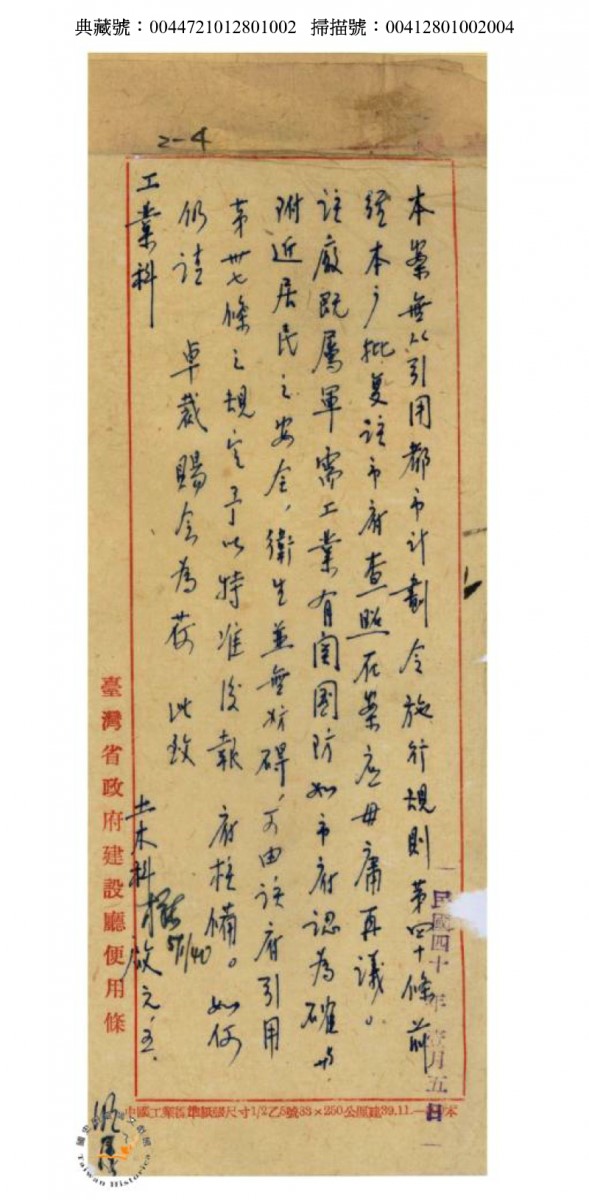 典藏號：0044721012801002 掃描號：00412801002004
2-4
本案無從引用都市計劃令施行規則第四十條前
經本廳批复該市府查照在案應毋庸再議。
該廠既屬軍需工業有関國防如市府認為確與
附近居民之安全，衛生並無妨碍，可由該府引用
第卅七條之規定予以特准後報 府核備。如何
仍請 卓裁賜會為荷 此致
工業科
土木科 啟 元.五.
5/1/40
民國四十年壹月五日
臺灣省政府建設廳便用條
中國工業標準紙張尺寸1/2乙5號33×250公厘建39.11.一 本
國史館臺灣文獻館
Taiwan Historica